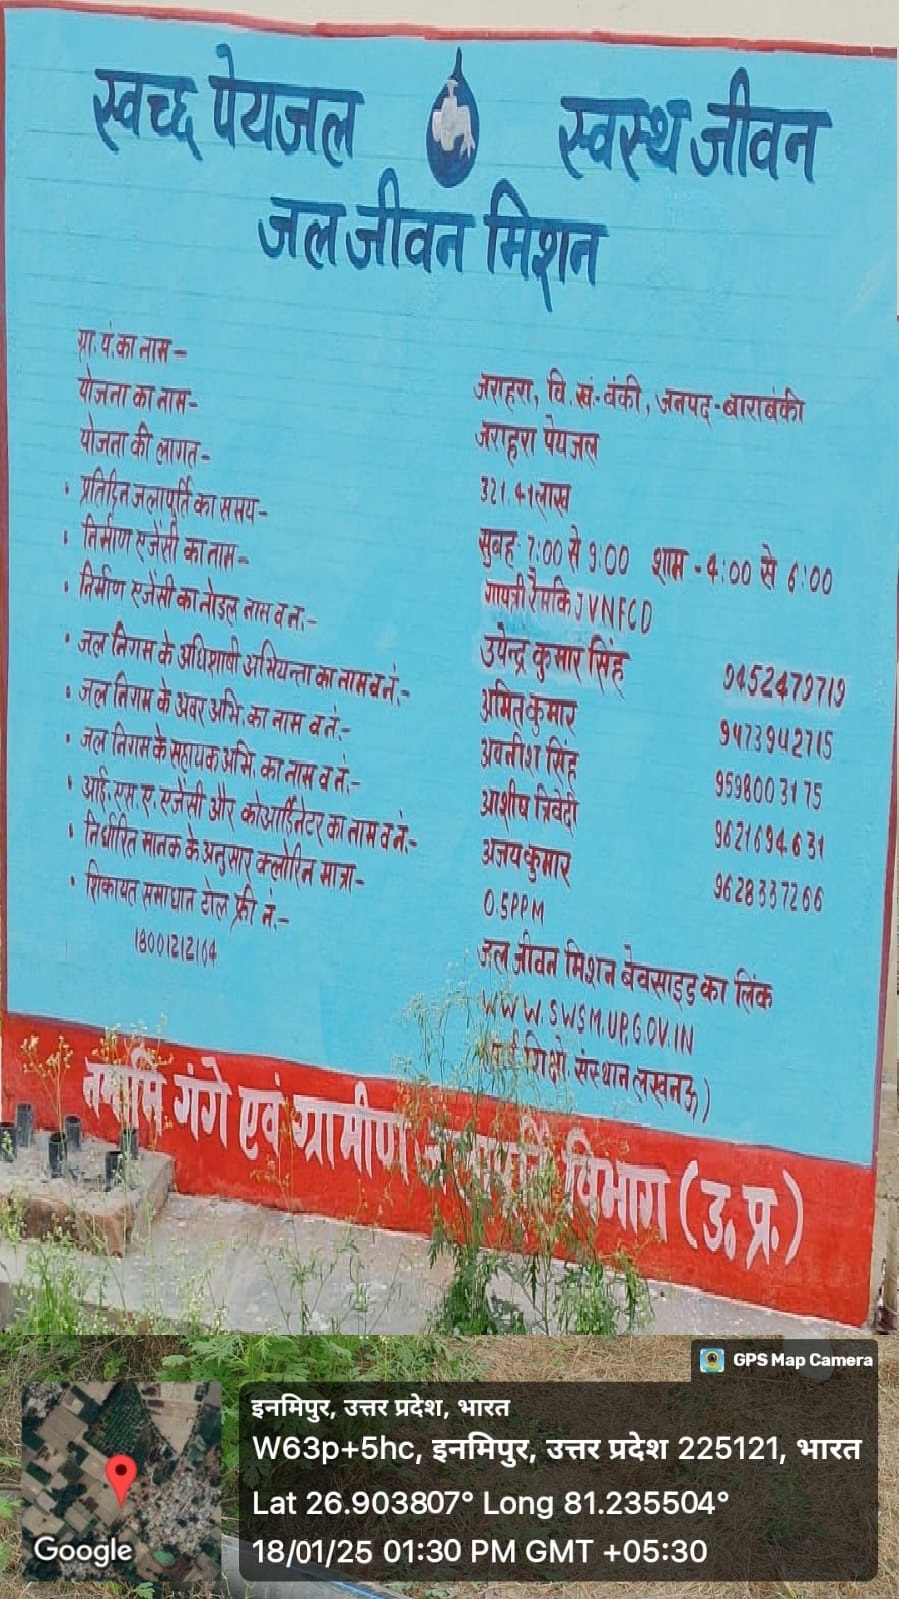 स्वच्छ पेयजल स्वस्थ जीवन
जल जीवन मिशन
ग्रा. पं. का नाम- जराहरा, वि. खं.-बंकी, जनपद-बाराबंकी
योजना का नाम- जराहरा पेयजल
योजना की लागत- 321.41लाख
• प्रतिदिन जलापूर्ति का समय- सुबह- 7:00 से 9:00 शाम - 4:00 से 6:00
• निर्माण एजेंसी का नाम- गायत्री रैमकि JVNFCD
• निर्माण एजेंसी का नोडल नाम व नं.:- उपेन्द्र कुमार सिंह 9452479719
• जल निगम के अधिशाषी अभियन्ता का नाम व नं.- अमित कुमार 9473942715
• जल निगम के अवर अभि. का नाम व नं.- अवनीश सिंह 9598003175
• जल निगम के सहायक अभि. का नाम व नं.- आशीष त्रिवेदी 9621694631
• आई. एस. ए. एजेंसी और कोआर्डिनेटर का नाम व नं.- अजय कुमार 9628337266
• निर्धारित मानक के अनुसार क्लोरिन मात्रा- 0.5PPM
• शिकायत समाधान टोल फ्री नं.-
18001212164
जल जीवन मिशन बेवसाइड का लिंक
WWW.SWSM.UP.GOV.IN
संस्थान लखनऊ)
नमामि गंगे एवं ग्रामीण विभाग (उ. प्र.)
GPS Map Camera
इनमिपुर, उत्तर प्रदेश, भारत
W63p+5hc, इनमिपुर, उत्तर प्रदेश 225121, भारत
Lat 26.903807° Long 81.235504°
18/01/25 01:30 PM GMT +05:30
Google